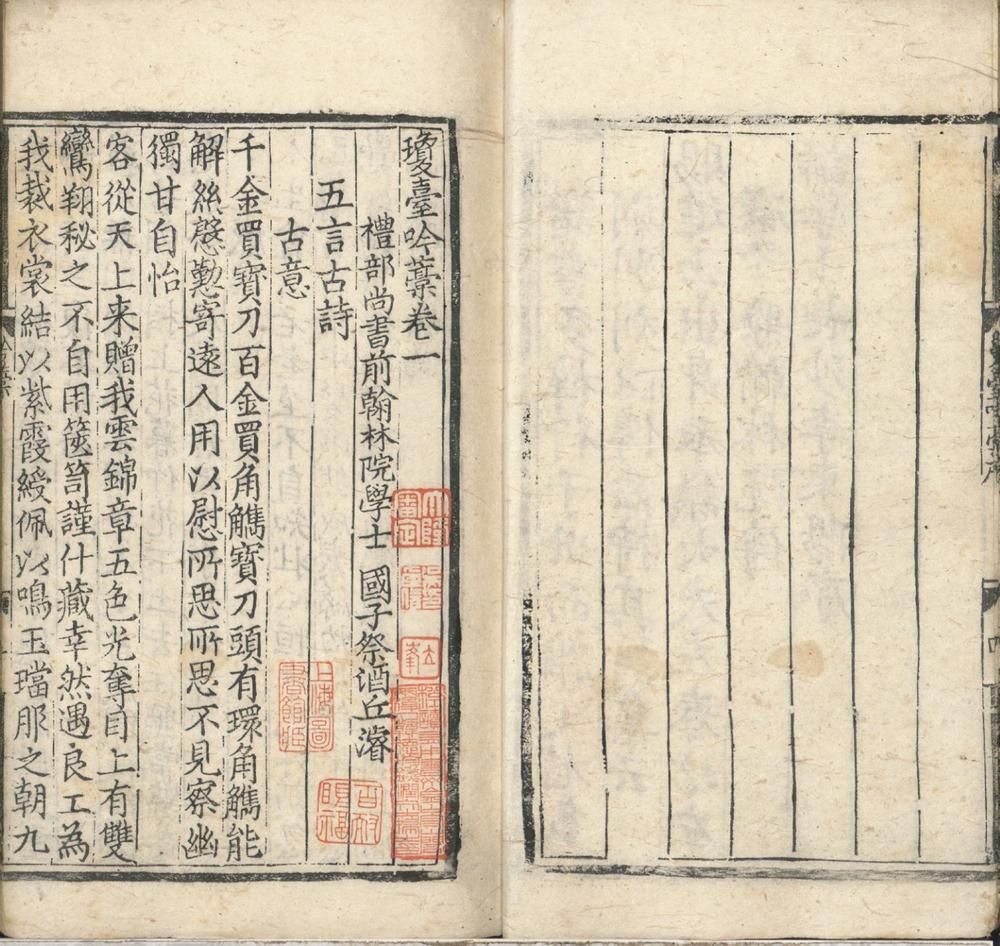 瓊臺吟藁卷一
禮部尚書前翰林院學士 國子祭酒丘濬
五言古詩
古意
千金買寶刀百金買角觿寶刀頭有環角觿能
解絲慇懃寄遠人用以慰所思所思不見察幽
獨甘自怡
客從天上来贈我雲錦章五色光奪目上有雙
鸞翔秘之不自用篋笥謹什藏幸然遇良工為
我裁衣裳結以紫霞綬佩以鳴玉璫服之朝九
上海圖
書館藏